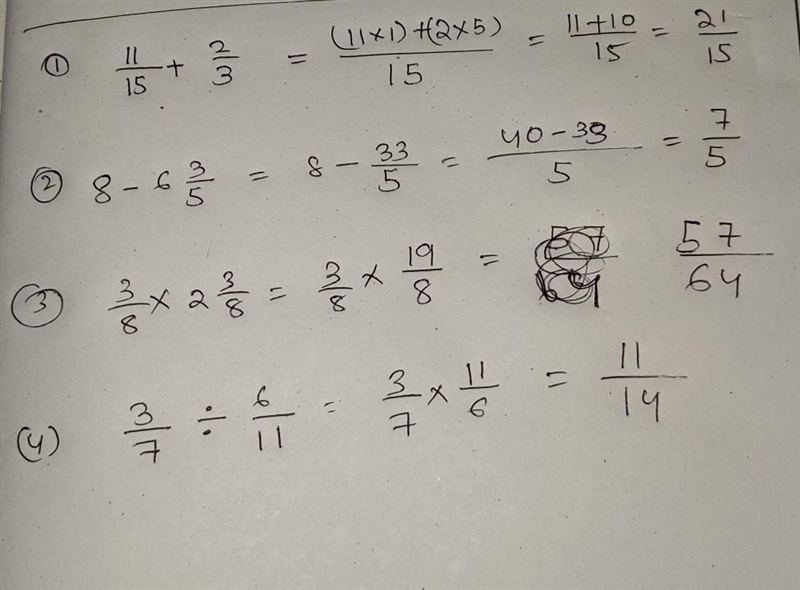 ① 11/15 + 2/3 = (11×1)+(2×5)/15 = 11+10/15 = 21/15
② 8 - 6 3/5 = 8 - 33/5 = 40-33/5 = 7/5
③ 3/8 × 2 3/8 = 3/8 × 19/8 = 57/64
(4) 3/7 ÷ 6/11 = 3/7 × 11/6 = 11/14